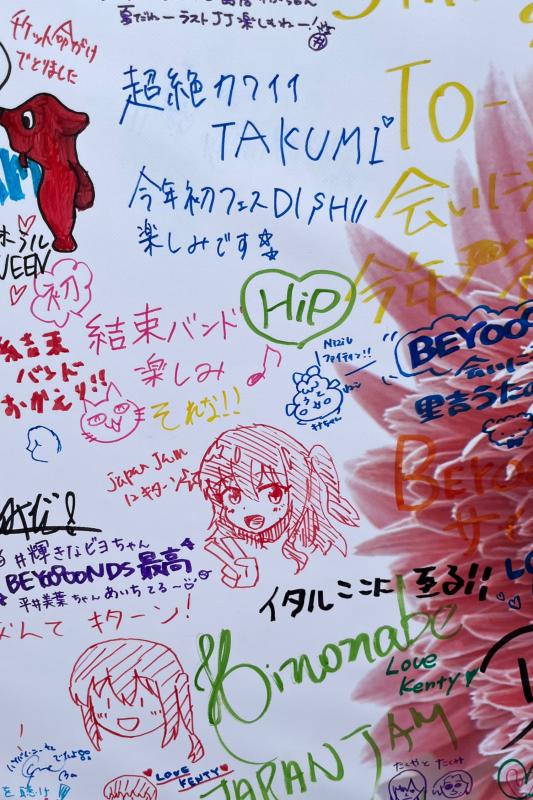 夏だねーラストJJ楽しむねー!
チケット
でとりました
超絶カワイイ
TAKUMI
TO-
会いに
今年初フェス DISH//
楽しみです
今年
UEEN
初
HiP
結束バンド
楽しみ
それな!!
結束
バンド
おかえり!!
NiziU
ファイティン!!
BEYOOO
会いに
里吉うたの
Japan Jam
にキターン
BEYOO
#輝きなビヨちゃん
BEYOOOOONDS 最高
平井美葉ちゃんあいちてる〜
イタルココに至る!!
なんて キターン!
Hinonabe
Love
Kenty
JAPAN JAM
LOVE
KENTY
たくやと たくみ
を聴け